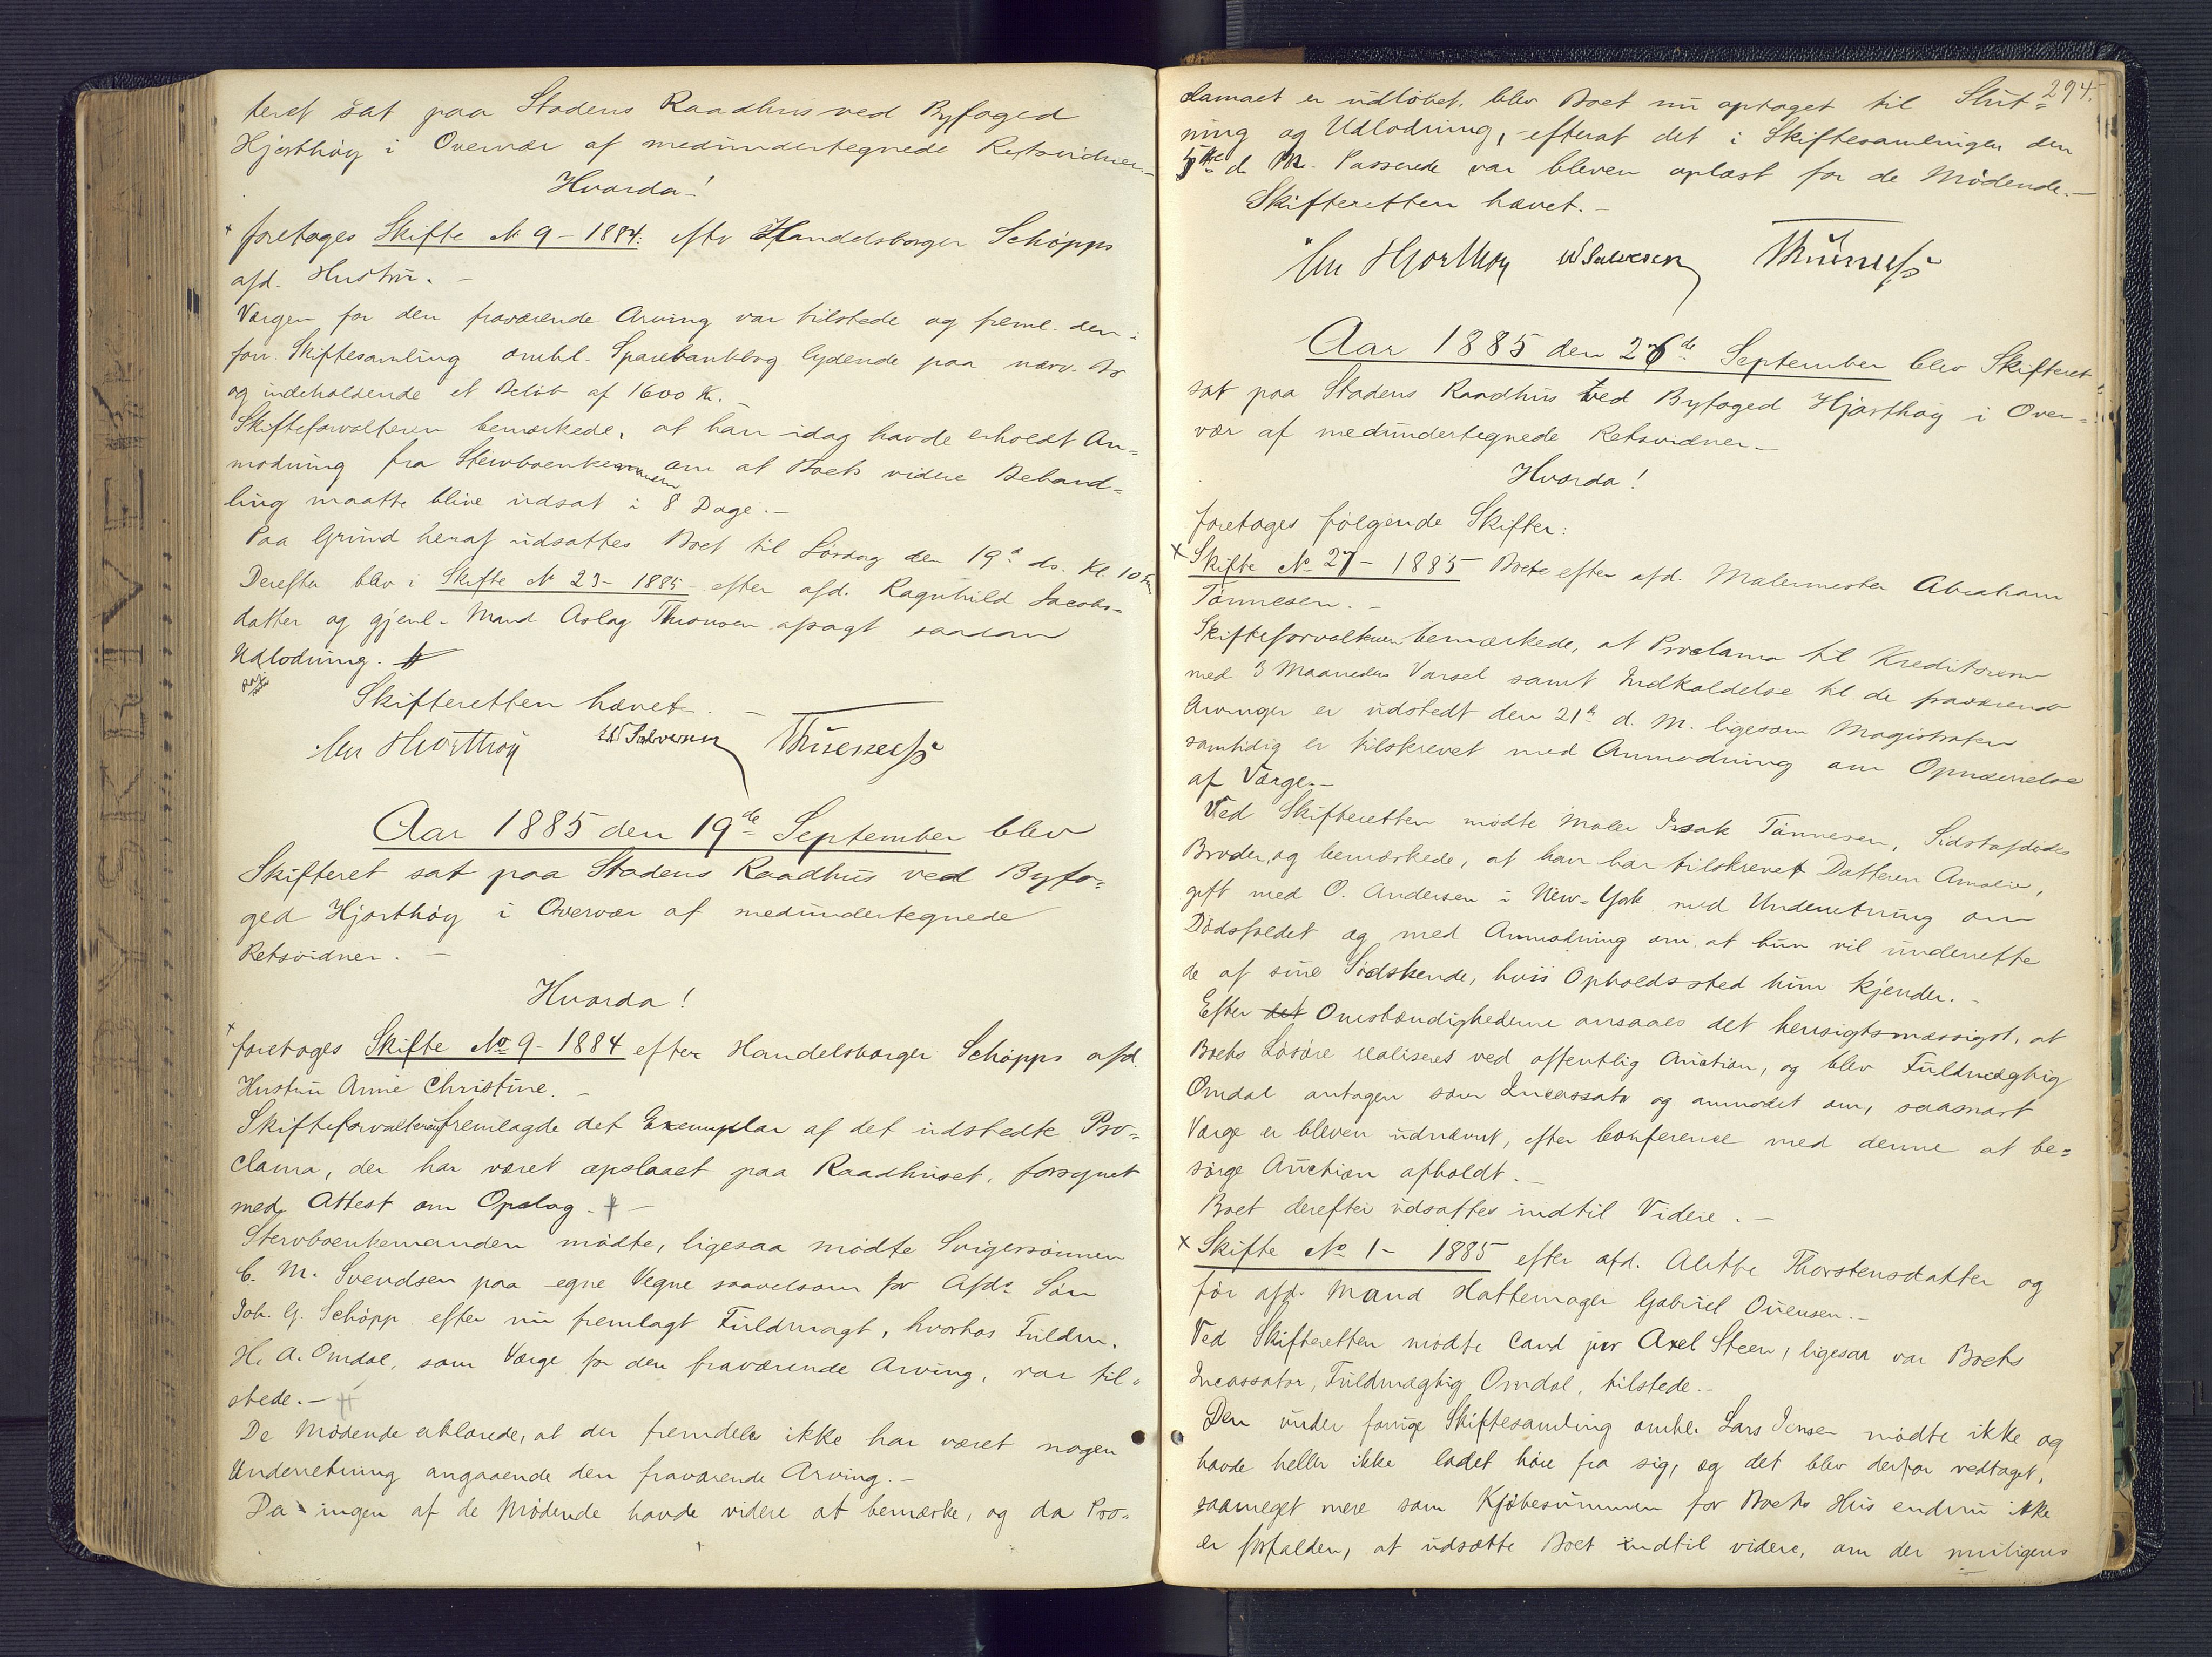 teret sat paa Stadens Raadhus ved Byfoged
Hjorthøy i Overvær af medundertegnede Retsvidner. –
Hvorda!
foretoges Skifte No 9 – 1884: efter Handelsborger Schøpps
afd. Hustru. –
Værgen for den fraværende Arving var tilstede og freml. den i
forr. Skiftesamling omhl. Sparebankbog lydende paa nærv. Bo
og indeholdende et Beløb af 1600 Kr. –
Skifteforvalteren bemærkede, at han idag havde erholdt An=
modning fra Stervboenkemanden om at Boets videre Behand=
ling maatte blive udsat i 8 Dage. –
Paa Grund heraf udsattes Boet til Lørdag den 19d ds. Kl. 10 Fm
Derefter blev i Skifte No 23 – 1885 – efter afd. Ragnhild Jacobs=
datter og gjenl. Mand Aslag Thronsen afsagt saadan
Udlodning.
Skifteretten hævet. –
Hjorthøy W Salvesen
Aar 1885 den 19de September blev
Skifteret sat paa Stadens Raadhus ved Byfo=
ged Hjorthøy i Overvær af medundertegnede
Retsvidner. –
Hvorda!
foretoges Skifte No 9 – 1884 efter Handelsborger Schøpps afd.
Hustru Anne Christine. –
Skifteforvalteren fremlagde det Exemplar af det udstedte Pro=
clama, der har været opslaaet paa Raadhuset, forsynet
med Attest om Opslag. –
Stervboenkemanden mødte, ligesaa mødte Svigersønnen
C. M. Svendsen paa egne Vegne saavelsom for Afds Søn
Joh. G. Schøpp efter nu fremlagt Fuldmagt, hvorhos Fuldm.
H. A. Omdal, som Værge for den fraværende Arving, var til=
stede. –
De Mødende erklærede, at der fremdeles ikke har været nogen
Underretning angaaende den fraværende Arving. –
Da ingen af de Mødende havde videre at bemærke, og da Pro=
294.
clamaet er udløbet, blev Boet nu optaget til Slut=
ning og Udlodning, efterat det i Skiftesamlingen den
5te d. M. Passerede var bleven oplæst for de Mødende. –
Skifteretten hævet. –
Hjorthøy W Salvesen
Aar 1885 den 26de September blev Skifteret
sat paa Stadens Raadhus ved Byfoged Hjorthøy i Over=
vær af medundertegnede Retsvidner –
Hvorda!
foretoges følgende Skifter:
Skifte No 27 – 1885 Boet efter afd. Malermester Abraham
Tønnesen. –
Skifteforvalteren bemærkede, at Proclama til Kreditorerne
med 3 Maaneders Varsel samt Indkaldelse til de fraværende
Arvinger er udstedt den 21de d. M. ligesom Magistraten
samtidig er tilskrevet med Anmodning om Opnævnelse
af Værge. –
Ved Skifteretten mødte Maler Isak Tønnesen, Sidstafdødes
Broder, og bemærkede, at han har tilskrevet Datteren Amalie,
gift med O. Andersen i New-York med Underretning om
Dødsfaldet og med Anmodning om at hun vil underrette
de af sine Sødskende, hvis Opholdssted hun kjender. –
Efter det Omstændighederne ansaaes det hensigtsmæssigst, at
Boets Løsøre realiseres ved offentlig Auction, og blev Fuldmægtig
Omdal antagen som Incassator og anmodet om, saasnart
Værge er bleven udnævnt, efter Conference med denne at be=
sørge Auction afholdt. –
Boet derefter udsattes indtil Videre. –
Skifte No 1 – 1885 efter afd. Alethe Thorstensdatter og
før afd. Mand Hattemager Gabriel Ouensen. –
Ved Skifteretten mødte Cand jur Axel Steen, ligesaa var Boets
Incassator, Fuldmægtig Omdal, tilstede. –
Den under forrige Skiftesamling omhl. Lars Jensen mødte ikke og
havde heller ikke ladet høre fra sig, og det blev derfor vedtaget,
saameget mere som Kjøbesummen for Boets Hus endnu ikke
er forfalden, at udsætte Boet indtil videre, om der muligens